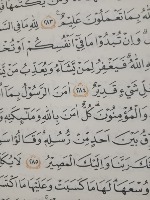 بِمَا تَعْمَلُونَ عَلِيمٌ ٢٨٣ لِلَّهِ مَا فِي
وَإِن تُبْدُوا۟ مَا فِىٓ أَنفُسِكُمْ أَوْ تُخْ
ٱللَّهُ فَيَغْفِرُ لِمَن يَشَآءُ وَيُعَذِّبُ مَن يَ
شَىْءٍ قَدِيرٌ ٢٨٤ ءَامَنَ ٱلرَّسُولُ بِمَآ أُ
وَٱلْمُؤْمِنُونَ كُلٌّ ءَامَنَ بِٱللَّهِ وَمَلَٰٓئِكَتِهِۦ وَ
بَيْنَ أَحَدٍ مِّن رُّسُلِهِۦ وَقَالُوا۟ سَ
رَبَّنَا وَإِلَيْكَ ٱلْمَصِيرُ ٢٨٥ لَا يُكَ
وُسْعَهَا لَهَا مَا كَسَبَتْ وَعَلَيْهَا مَا ٱكْتَسَ